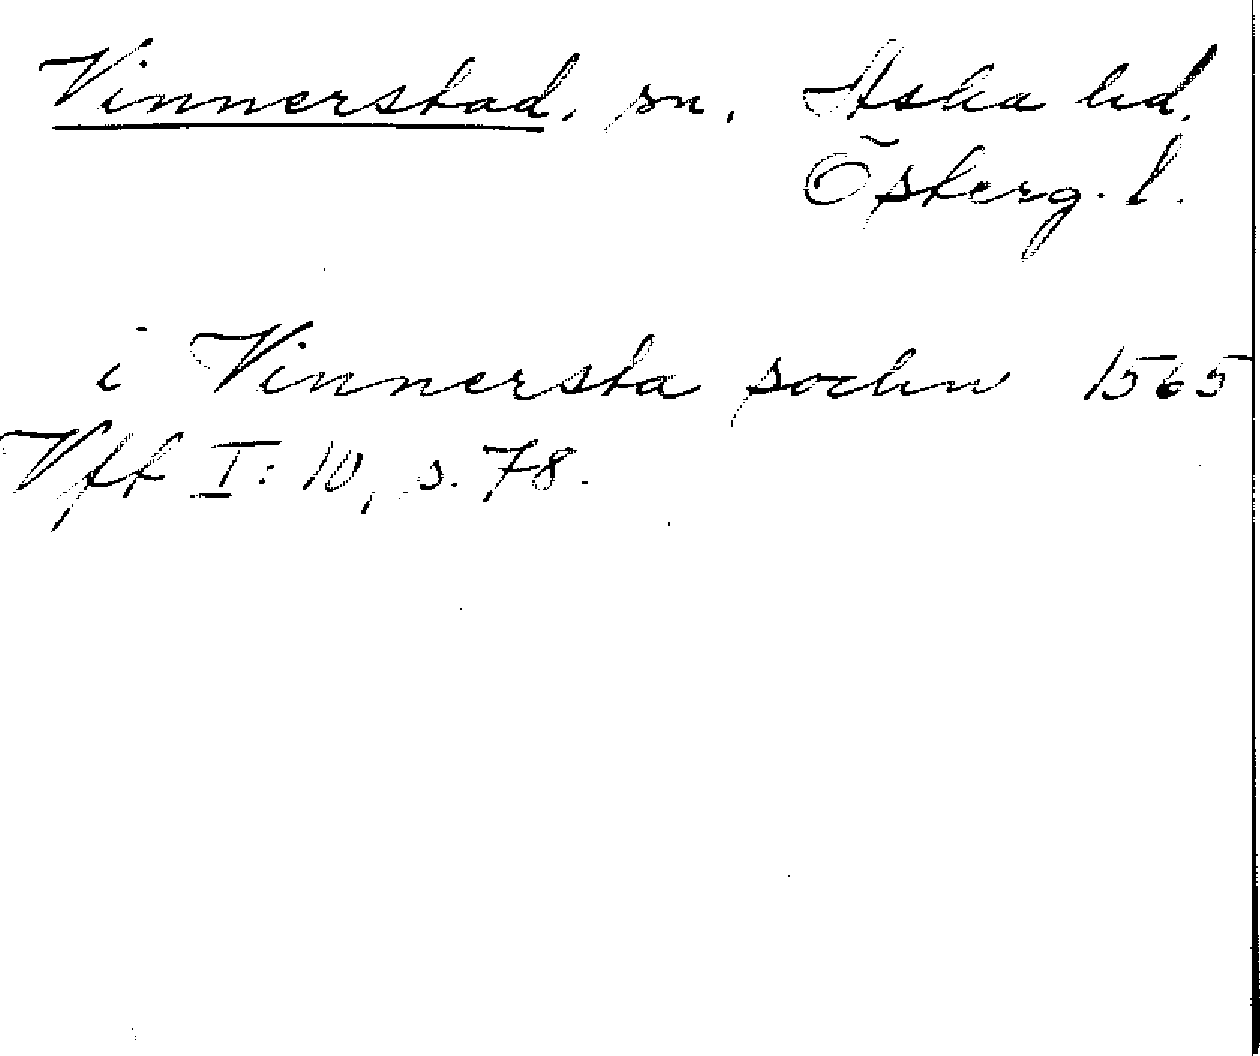 Vinnerstad, sn. Aska hd.
Österg. l.
i Vinnersta sochn 1565
Vff I: 10, s. 78.